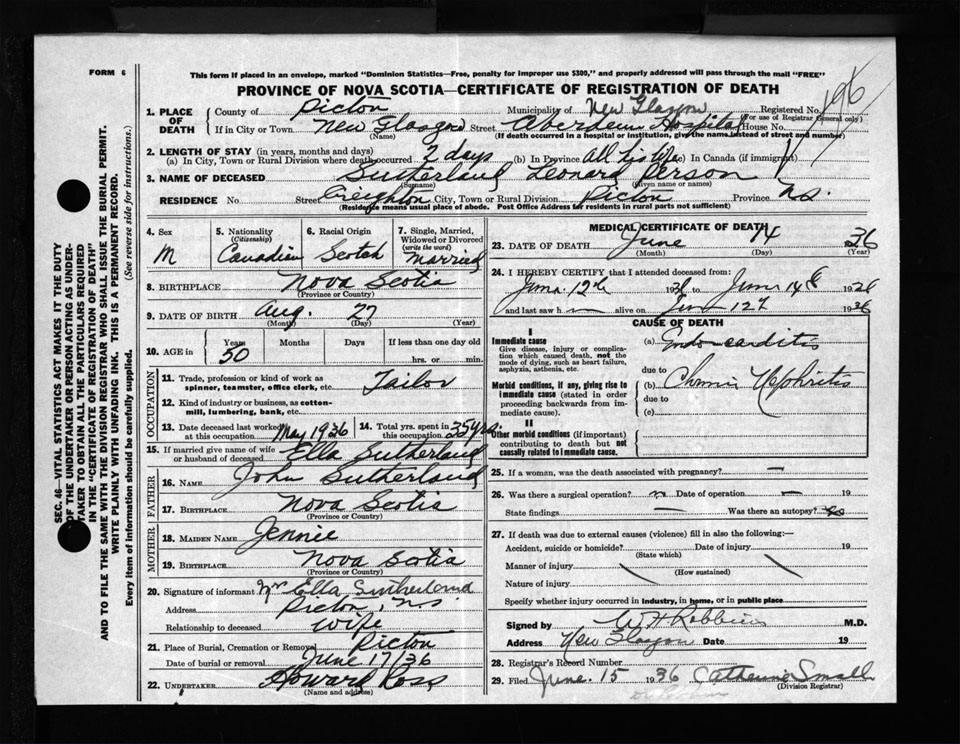 FORM 6
This form if placed in an envelope, marked "Dominion Statistics—Free, penalty for improper use $300," and properly addressed will pass through the mail "FREE"
PROVINCE OF NOVA SCOTIA—CERTIFICATE OF REGISTRATION OF DEATH
1. PLACE OF DEATH
County of Picton Municipality of New Glasgow Registered No.
(For use of Registrar General only)
If in City or Town New Glasgow Street Aberdeen Hospital House No.
(Name) (If death occurred in a hospital or institution, give the name instead of street and number)
2. LENGTH OF STAY (in years, months and days)
(a) In City, Town or Rural Division where death occurred 2 days (b) In Province all his life (c) In Canada (if immigrant)
3. NAME OF DECEASED Sutherland Leonard Person
(Surname) (Given name or names)
RESIDENCE No Street Creighton City, Town or Rural Division Picton Province N.S.
(Residence means usual place of abode. Post Office Address for residents in rural parts not sufficient)
4. Sex M
5. Nationality (Citizenship) Canadian
6. Racial Origin Scotch
7. Single, Married, Widowed or Divorced (write the word) Married
8. BIRTHPLACE Nova Scotia
(Province or Country)
9. DATE OF BIRTH Aug. 27
(Month) (Day) (Year)
10. AGE in Years Months Days If less than one day old
50 hrs. or min.
OCCUPATION
11. Trade, profession or kind of work as spinner, teamster, office clerk, etc. Tailor
12. Kind of industry or business, as cotton-mill, lumbering, bank, etc.
13. Date deceased last worked at this occupation May 1936
14. Total yrs. spent in this occupation 35 yrs.
15. If married give name of wife or husband of deceased Ella Sutherland
FATHER
16. NAME John Sutherland
17. BIRTHPLACE Nova Scotia
(Province or Country)
MOTHER
18. MAIDEN NAME Jennie
19. BIRTHPLACE Nova Scotia
(Province or Country)
20. Signature of informant Ella Sutherland
Address Picton, N.S.
Relationship to deceased Wife
21. Place of Burial, Cremation or Removal Picton
Date of burial or removal June 17/36
22. UNDERTAKER Howard Ross
(Name and address)
MEDICAL CERTIFICATE OF DEATH
23. DATE OF DEATH June 14 36
(Month) (Day) (Year)
24. I HEREBY CERTIFY that I attended deceased from:
June 12th 1936 to June 14th 1936
and last saw h alive on June 12th 1936
CAUSE OF DEATH
I
Immediate cause
Give disease, injury or complication which caused death, not the mode of dying, such as heart failure, asphyxia, asthenia, etc.
(a) Endocarditis
due to
Morbid conditions, if any, giving rise to immediate cause (stated in order proceeding backwards from immediate cause).
(b) Chronic Nephritis
due to
(c)
II
Other morbid conditions (if important) contributing to death but not causally related to immediate cause.
25. If a woman, was the death associated with pregnancy? —
26. Was there a surgical operation? Date of operation — 19
State findings — Was there an autopsy?
27. If death was due to external causes (violence) fill in also the following:—
Accident, suicide or homicide? Date of injury 19
(State which)
Manner of injury
(How sustained)
Nature of injury
Specify whether injury occurred in industry, in home, or in public place
Signed by W H Robbins M.D.
Address New Glasgow Date 19
28. Registrar's Record Number
29. Filed June. 15 1936 Catherine Small
(Division Registrar)
SEC. 46—VITAL STATISTICS ACT MAKES IT THE DUTY
OF THE UNDERTAKER OR PERSON ACTING AS UNDER-
TAKER TO OBTAIN ALL THE PARTICULARS REQUIRED
IN THE "CERTIFICATE OF REGISTRATION OF DEATH"
AND TO FILE THE SAME WITH THE DIVISION REGISTRAR WHO SHALL ISSUE THE BURIAL PERMIT.
WRITE PLAINLY WITH UNFADING INK. THIS IS A PERMANENT RECORD.
Every item of information should be carefully supplied. (See reverse side for instructions.)